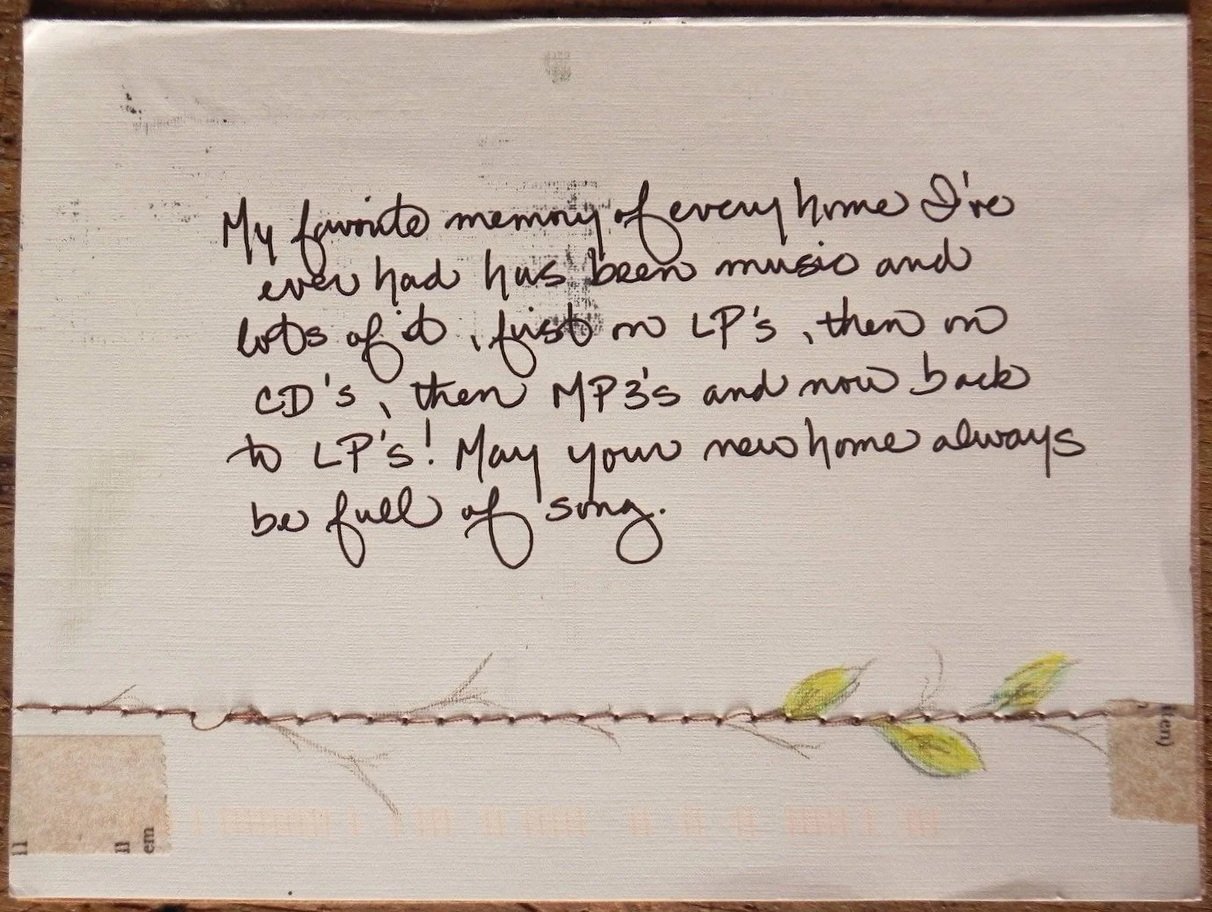 My favorite memory of every home I've
ever had has been music and
lots of it, first on LP's, then on
CD's, then MP3's and now back
to LP's! May your new home always
be full of song.
ten)
ll
ll
em